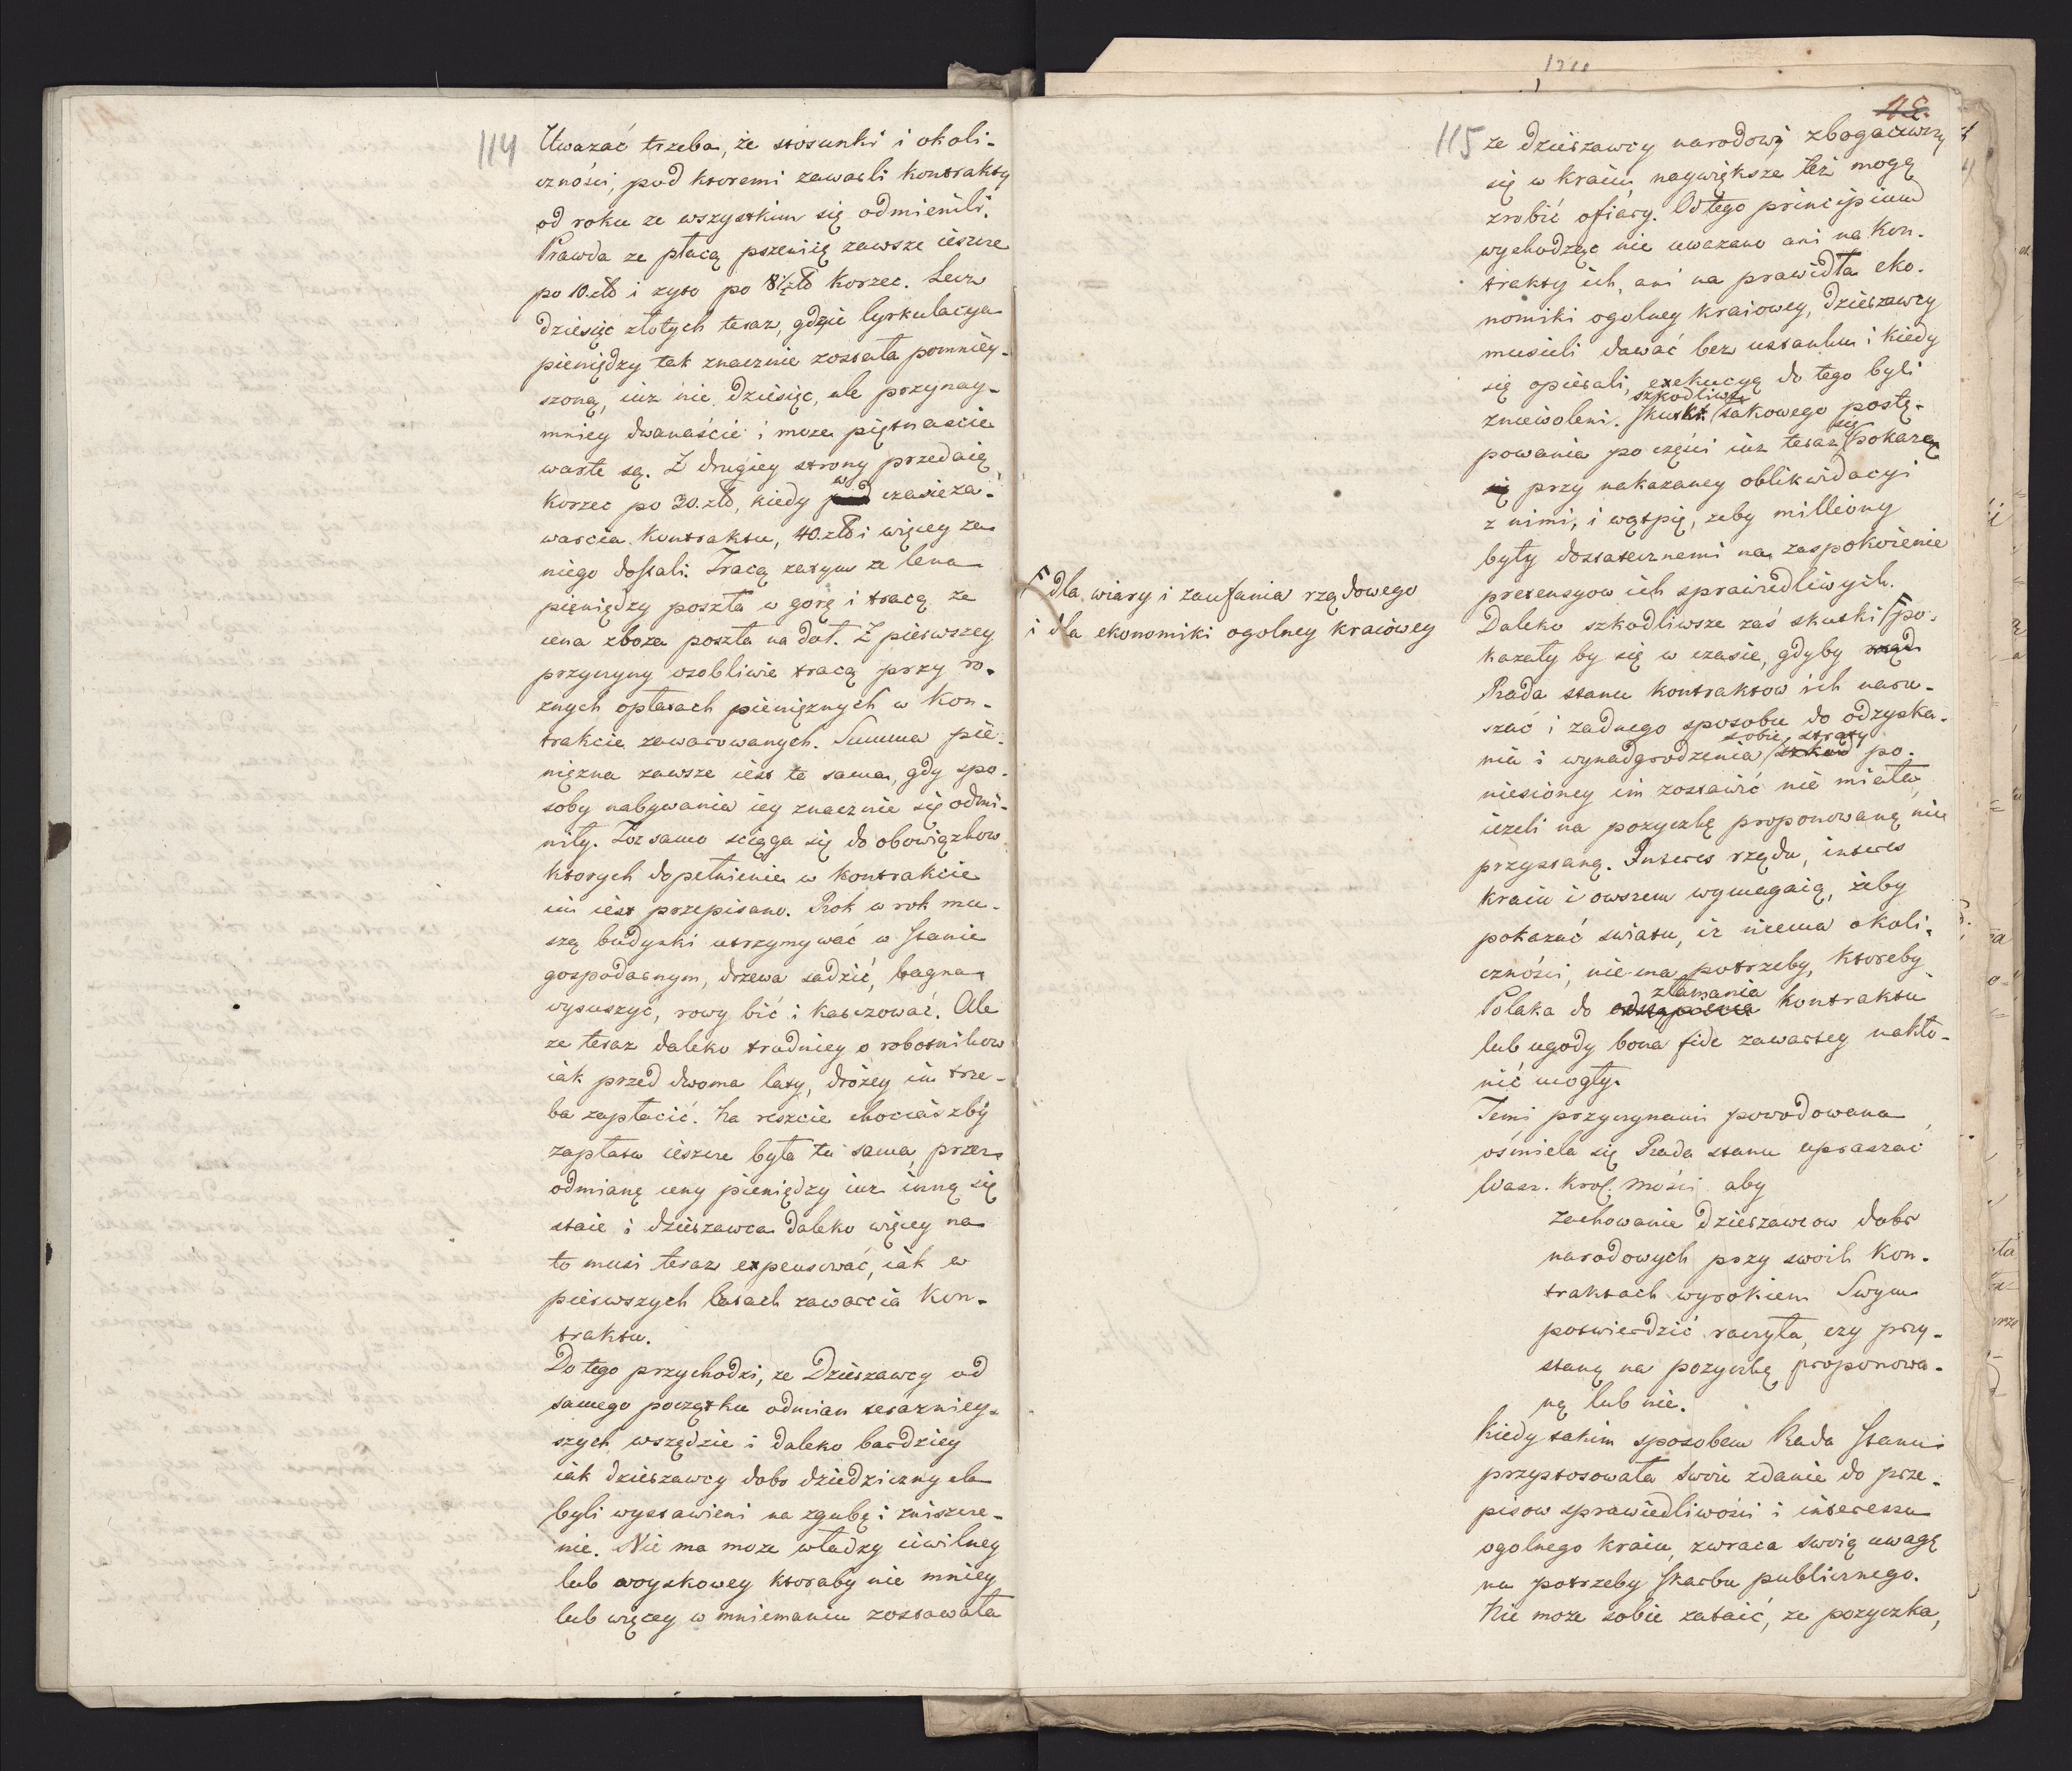 114
Uwazać trzeba, że stosunki i okoli-
czności, pod ktoremi zawarli kontrakty
od roku ze wszystkim się odmienili.
Prawda ze płacą pszenicę zawsze ieszcze
po 10. zło i zyto po 8½ zło korzec. Lecz
dziesięć złotych teraz, gdzie Cyrkulacya
pieniędzy tak znacznie została pomniey-
szoną, iuz nie dziesięć, ale przynay-
mniey dwanaście i może piętnascie
warte są. Z drugiey strony przedaią
korzec po 30. zło, kiedy w czasie za-
warcia kontraktu, 40. zło i więcey za
niego dostali. Tracą zatym ze Cena
pieniędzy poszła w gorę i tracą ze
cena zboza poszła na doł. Z pierwszey
przyczyny osobliwie tracą przy ro-
znych opłatach pieniężnych w kon-
trakcie zawarowanych. Summa pie-
niężna zawsze iest ta sama, gdy spo-
soby nabywania iey znacznie się odmi-
niły. Toz samo sciąga się do obowiązkow
ktorych dopełnienie w kontrakcie
im iest przepisane. Rok w rok mu-
szą budynki utrzymywać w stanie
gospodarnym, drzewa sadzić, bagna
wysuszyć, rowy bić i karczować. Ale
ze teraz daleko trudniey o robotnikow
iak przed dwoma laty, drożey im trze-
ba zapłacić. Na reszcie chociaiszby
zapłata ieszcze była ta sama, przez
odmianę ceny pieniędzy iuz inną się
staie i dzierzawca daleko więcey na
to musi teraz expensować, iak w
pierwszych latach zawarcia kon-
traktu.
Do tego przychodzi, ze Dzierzawcy od
samego początku odmian terazniey-
szych wszędzie i daleko bardziey
iak dzierzawcy dobr dziedzicznych
byli wystawieni na zgubę i zniszcze-
nie. Nie ma moze władzy ciwilney
lub woyskowey ktoraby nie mniey
lub więcey w mniemaniu zostawała
115
ze dzierzawcy narodowi zbogaciwszy
się w kraiu, naywiększe też mogą
zrobić ofiary. Od tego principium
wychodząc nie uwazano ani na kon-
trakty ich, ani na prawidła eko-
nomiki ogolney kraiowey, dzierzawcy
musieli dawać bez ustanku i kiedy
się opierali, exekucyą do tego byli
szkodliwe
zniewoleni. Skutki takowego postę-
się
powania po części iuz teraz pokazą
się przy nakazaney oblikwidacyi
z nimi, i wątpię, zeby milliony
były dostatecznemi na zaspokoienie
pretensyow ich sprawiedliwych.
Daleko szkodliwsze zaś skutki po-
F dla wiary i zaufania rządowego
i dla ekonomiki ogolney kraiowey
kazały by się w czasie, gdyby rząd
Rada stanu kontraktow ich naru-
szać i zadnego sposobu do odzyska-
sobie straty
nia i wynadgrodzenia szkod po-
niesioney im zostawić nie miała,
iezeli na pozyczkę proponowaną nie
przystaną. Interes rządu, interes
kraiu i owszem wymagaią, żeby
pokazać swiatu, iz niema okoli-
czności, nie ma potrzeby, ktoreby
złamania
Polaka do odstąpienia kontraktu
lub ugody bona fide zawartey nakło-
nić mogły.
Temi przyczynami powodowana
ośmiela się Rada stanu upraszać
Wasz. Krol. Mości aby
zachowanie dzierzawcow dobr
narodowych przy swoich kon-
traktach wyrokiem Swym
potwierdzić raczyła, czy przy-
staną na pozyczkę proponowa-
ną lub nie.
Kiedy takim sposobem Rada Stanu
przystosowała swoie zdanie do prze-
pisow sprawiedliwości i interessu
ogolnego kraiu, zwraca swoią uwagę
na potrzeby Skarbu publicznego.
Nie moze sobie zataić, ze pozyczka,